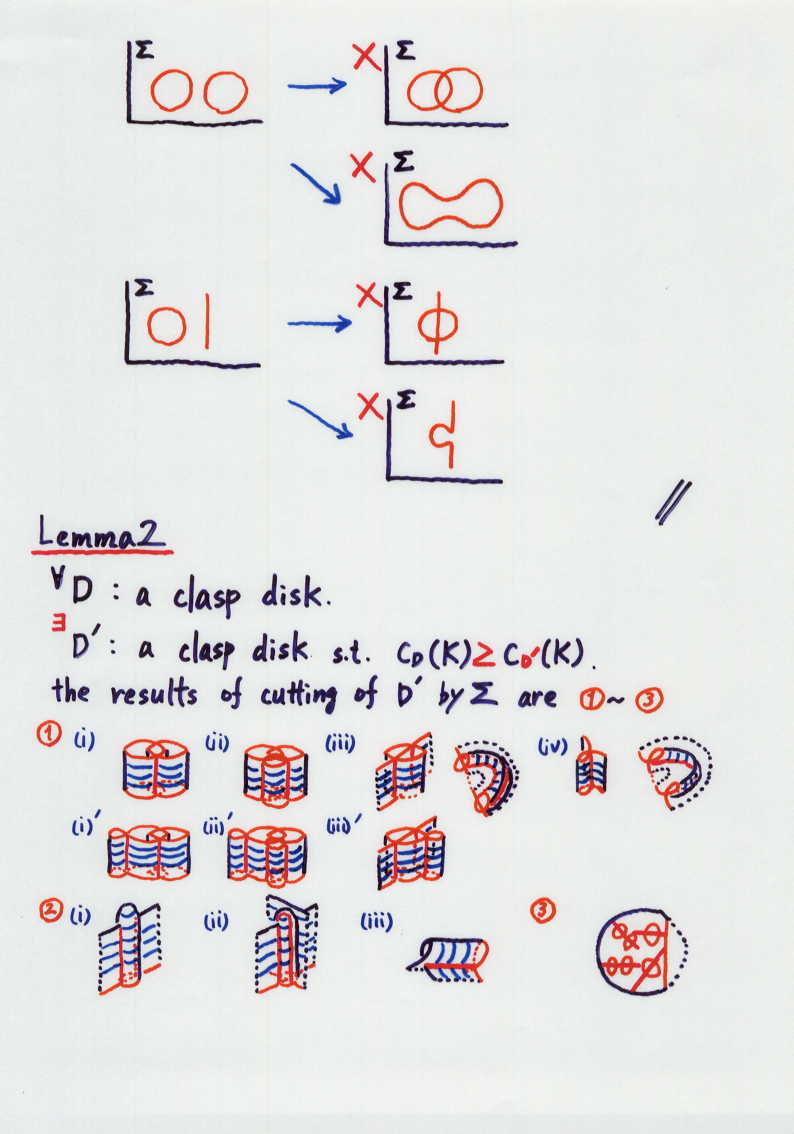 Σ × Σ
× Σ
Σ × Σ
× Σ
//
Lemma 2
∀D : a clasp disk.
∃D′ : a clasp disk s.t. C_D(K) ≥ C_D′(K).
the results of cutting of D′ by Σ are ① ~ ③
① (i) (ii) (iii) (iv)
(i)′ (ii)′ (iii)′
② (i) (ii) (iii) ③